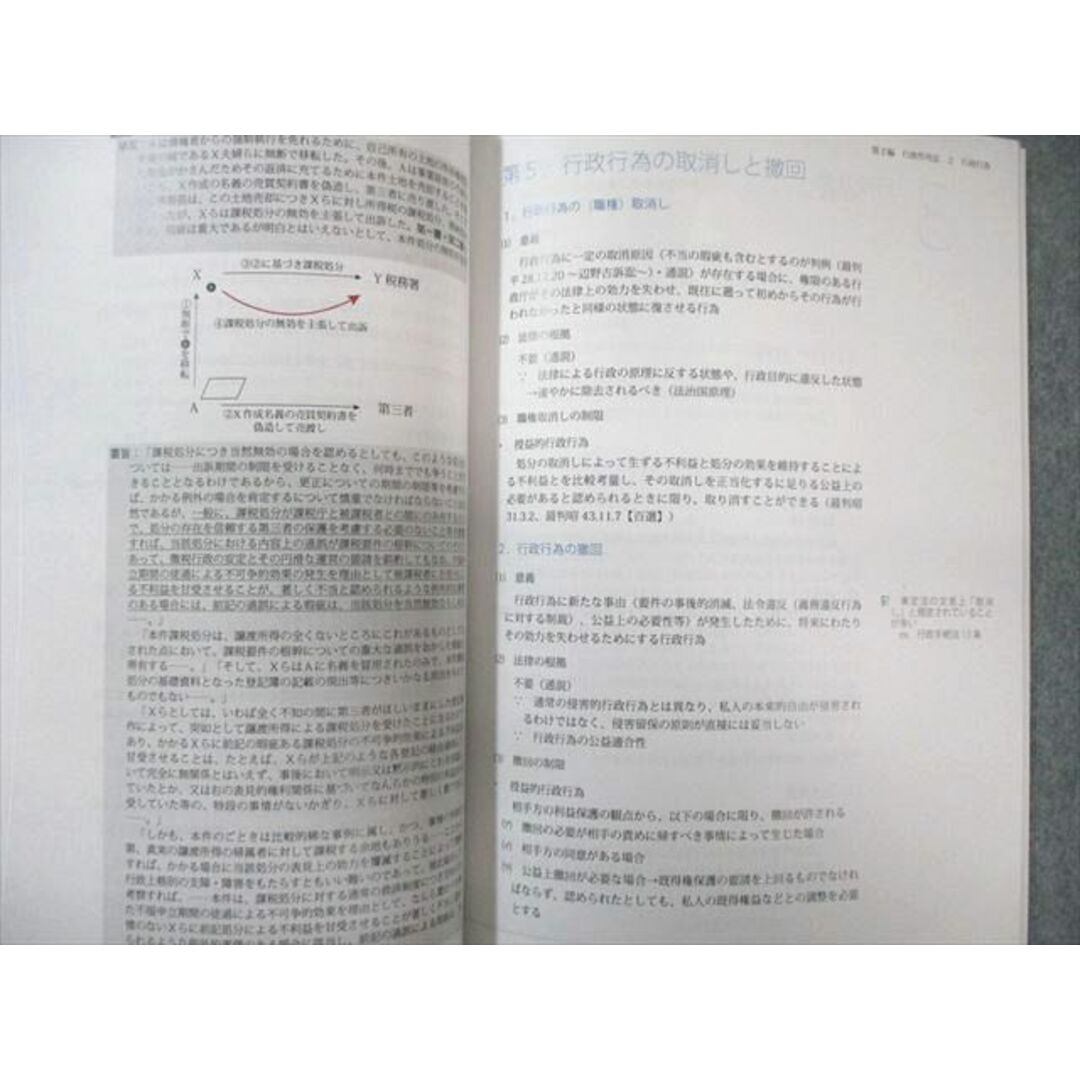 事案：Aは債権者からの強制執行を免れるために、自己所有の土地の
であるX夫婦らに無断で移転した。その後、Aは事業
がかさんだためその返済に充てるために本件土地を売却すること
、X作成の名義の売買契約書を偽造し、第三者に売り渡した。
税務署は、この土地売却につきXらに対し所得税の課税処分
、Xらは課税処分の無効を主張して出訴した。
瑕疵は重大であるが明白とはいえないとして、本件処分
③②に基づき課税処分
X
Y税務署
④課税処分の無効を主張して出訴
①無断で
を移転
A
②X作成名義の売買契約書を
偽造して売渡し
第三者
要旨：「課税処分につき当然無効の場合を認めるとしても、このような
ついては……出訴期間の制限を受けることなく、何時まででも争う
きることとなるわけであるから、更正についての期間の制限等を考慮
ば、かかる例外の場合を肯定するについて慎重でなければならない
然であるが、一般に、課税処分が課税庁と被課税者との間にのみ
で、処分の存在を信頼する第三者の保護を考慮する必要のないこと等
すれば、当該処分における内容上の過誤が課税要件の根幹についての
あって、徴税行政の安定とその円滑な運営の要請を斟酌してもなお、
立期間の徒過による不可争的効果の発生を理由として被課税者に
る不利益を甘受させることが、著しく不当と認められるような例外的な
のある場合には、前記の過誤による瑕疵は、当該処分を当然無効
……。」
「本件課税処分は、譲渡所得の全くないところにこれがあるものとして
された点において、課税要件の根幹についての重大な過誤をおかした
帯有する……。」「そして、XらはAに名義を冒用されたのみで、
処分の基礎資料となった登記簿の記載の現出等につきいかなる原因
ものでもない……。」
「Xらとしては、いわば全く不知の間に第三者がほしいままにした
作によって、突如として譲渡所得による課税処分を受けたことになる
あり、かかるXらに前記の瑕疵ある課税処分の不可争的効果による
甘受させることは、たとえば、Xらが上記のような各登記の経由過程に
いて完全に無関係とはいえず、事後において明示又は黙示的にこれを
ていたとか、又は右の表見的権利関係に基づいてなんらかの特別の利益を
受していた等の、特段の事情がないかぎり、Xらに対して著しく
……。」
「しかも、本件のごときは比較的稀な事例に属し、かつ、事情の
第、真実の譲渡所得の帰属者に対して課税する余地もありうる
すれば、かかる場合に当該処分の表見上の効力を覆滅することによって
行政上格別の支障・障害をもたらすともいい難いのであって、
考慮すれば、……本件は、課税処分に対する通常の救済制度につき
た不服申立期間の徒過による不可争的効果を理由として、なんら
情のないXらに前記処分による不利益を甘受させることが著しく不当
第2編 行政作用法 2 行政行為
第5 行政行為の取消しと撤回
1．行政行為の（職権）取消し
(1) 意義
行政行為に一定の取消原因（不当の瑕疵も含むとするのが判例（最判
平28.12.20〜辺野古訴訟〜）・通説）が存在する場合に、権限のある行
政庁がその法律上の効力を失わせ、既往に遡って初めからその行為が行
われなかったと同様の状態に復させる行為
(2) 法律の根拠
不要（通説）
∵ 法律による行政の原理に反する状態や、行政目的に違反した状態
→速やかに除去されるべき（法治国原理）
(3) 職権取消しの制限
・ 授益的行政行為
処分の取消しによって生ずる不利益と処分の効果を維持することによ
る不利益とを比較考量し、その取消しを正当化するに足りる公益上の
必要があると認められるときに限り、取り消すことができる（最判昭
31.3.2、最判昭 43.11.7【百選】）
2．行政行為の撤回
(1) 意義
行政行為に新たな事由（要件の事後的消滅、法令違反（義務違反行為
に対する制裁）、公益上の必要性等）が発生したために、将来にわたり
その効力を失わせるためにする行政行為
実定法の文言上「取消
し」と規定されていること
が多い
ex. 行政手続法13条
(2) 法律の根拠
不要（通説）
∵ 通常の侵害的行政行為とは異なり、私人の本来的自由が侵害され
るわけではなく、侵害留保の原則が直接には妥当しない
∵ 行政行為の公益適合性
(3) 撤回の制限
・ 授益的行政行為
相手方の利益保護の観点から、以下の場合に限り、撤回が許される
(ｱ) 撤回の必要が相手の責めに帰すべき事情によって生じた場合
(ｲ) 相手方の同意がある場合
(ｳ) 公益上撤回が必要な場合→既得権保護の要請を上回るものでなけれ
ばならず、認められたとしても、私人の既得権益などとの調整を必要
とする